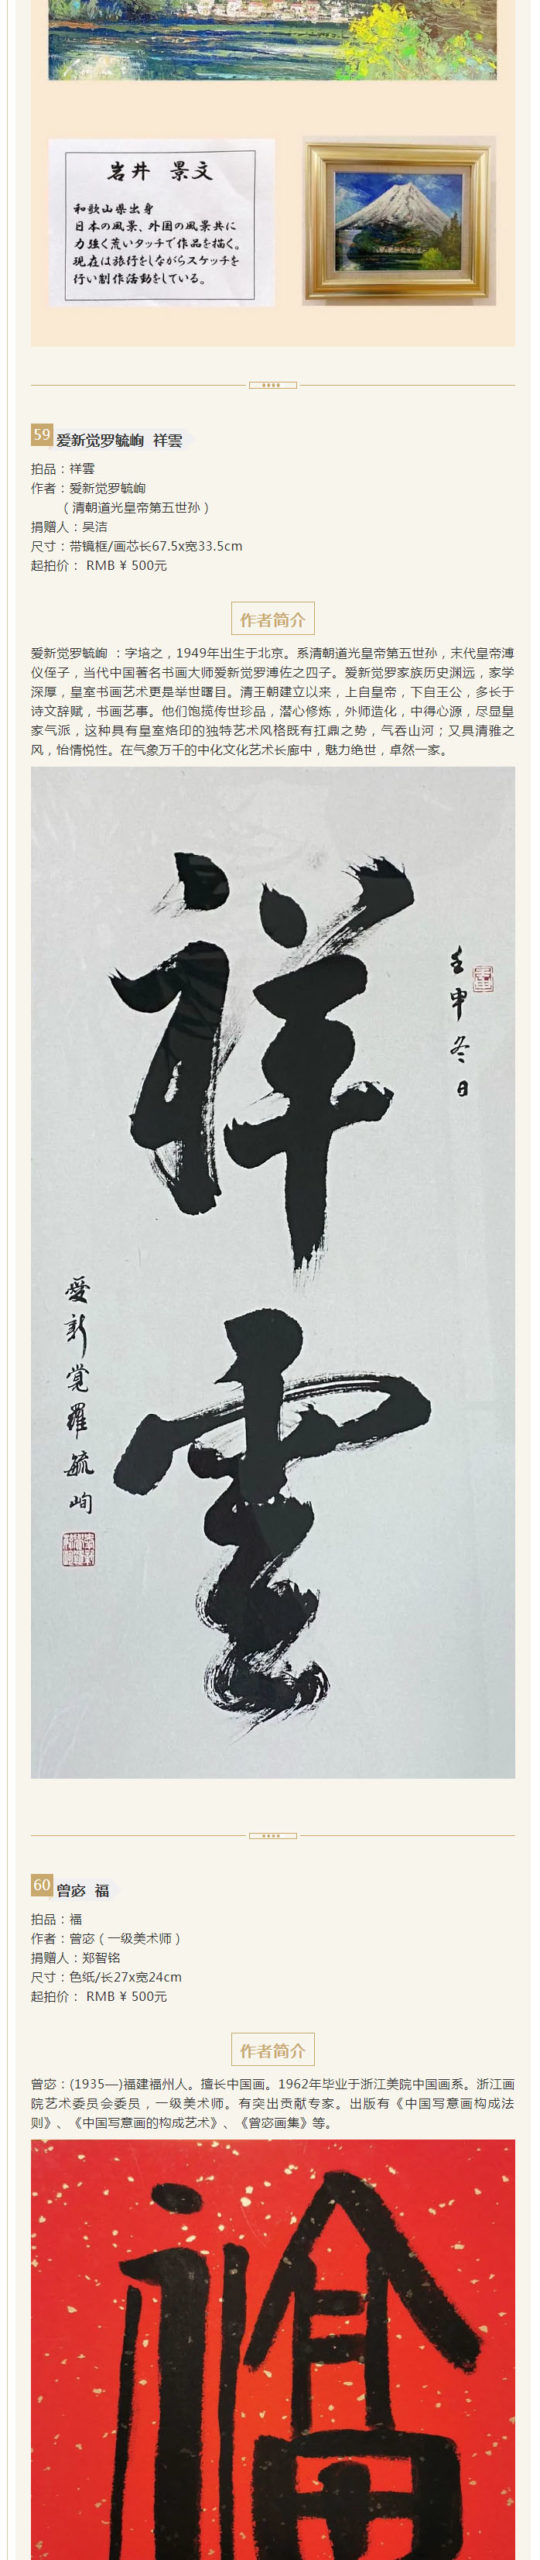 岩井 景文
和歌山県出身
日本の風景、外国の風景共に
力強く荒いタッチで作品を描く。
現在は旅行をしながらスケッチを
行い制作活動をしている。
59
爱新觉罗毓峋 祥雲
拍品：祥雲
作者：爱新觉罗毓峋
（清朝道光皇帝第五世孙）
捐赠人：吴洁
尺寸：带镜框/画芯长67.5x宽33.5cm
起拍价： RMB ¥ 500元
作者简介
爱新觉罗毓峋 ：字培之，1949年出生于北京。系清朝道光皇帝第五世孙，末代皇帝溥
仪侄子，当代中国著名书画大师爱新觉罗溥佐之四子。爱新觉罗家族历史渊远，家学
深厚，皇室书画艺术更是举世曙目。清王朝建立以来，上自皇帝，下自王公，多长于
诗文辞赋，书画艺事。他们饱揽传世珍品，潜心修炼，外师造化，中得心源，尽显皇
家气派，这种具有皇室烙印的独特艺术风格既有扛鼎之势，气吞山河；又具清雅之
风，怡情悦性。在气象万千的中化文化艺术长廊中，魅力绝世，卓然一家。
壬申冬日
祥雲
愛新覺羅毓峋
60
曾宓 福
拍品：福
作者：曾宓（一级美术师）
捐赠人：郑智铭
尺寸：色纸/长27x宽24cm
起拍价： RMB ¥ 500元
作者简介
曾宓：(1935—)福建福州人。擅长中国画。1962年毕业于浙江美院中国画系。浙江画
院艺术委员会委员，一级美术师。有突出贡献专家。出版有《中国写意画构成法
则》、《中国写意画的构成艺术》、《曾宓画集》等。
福